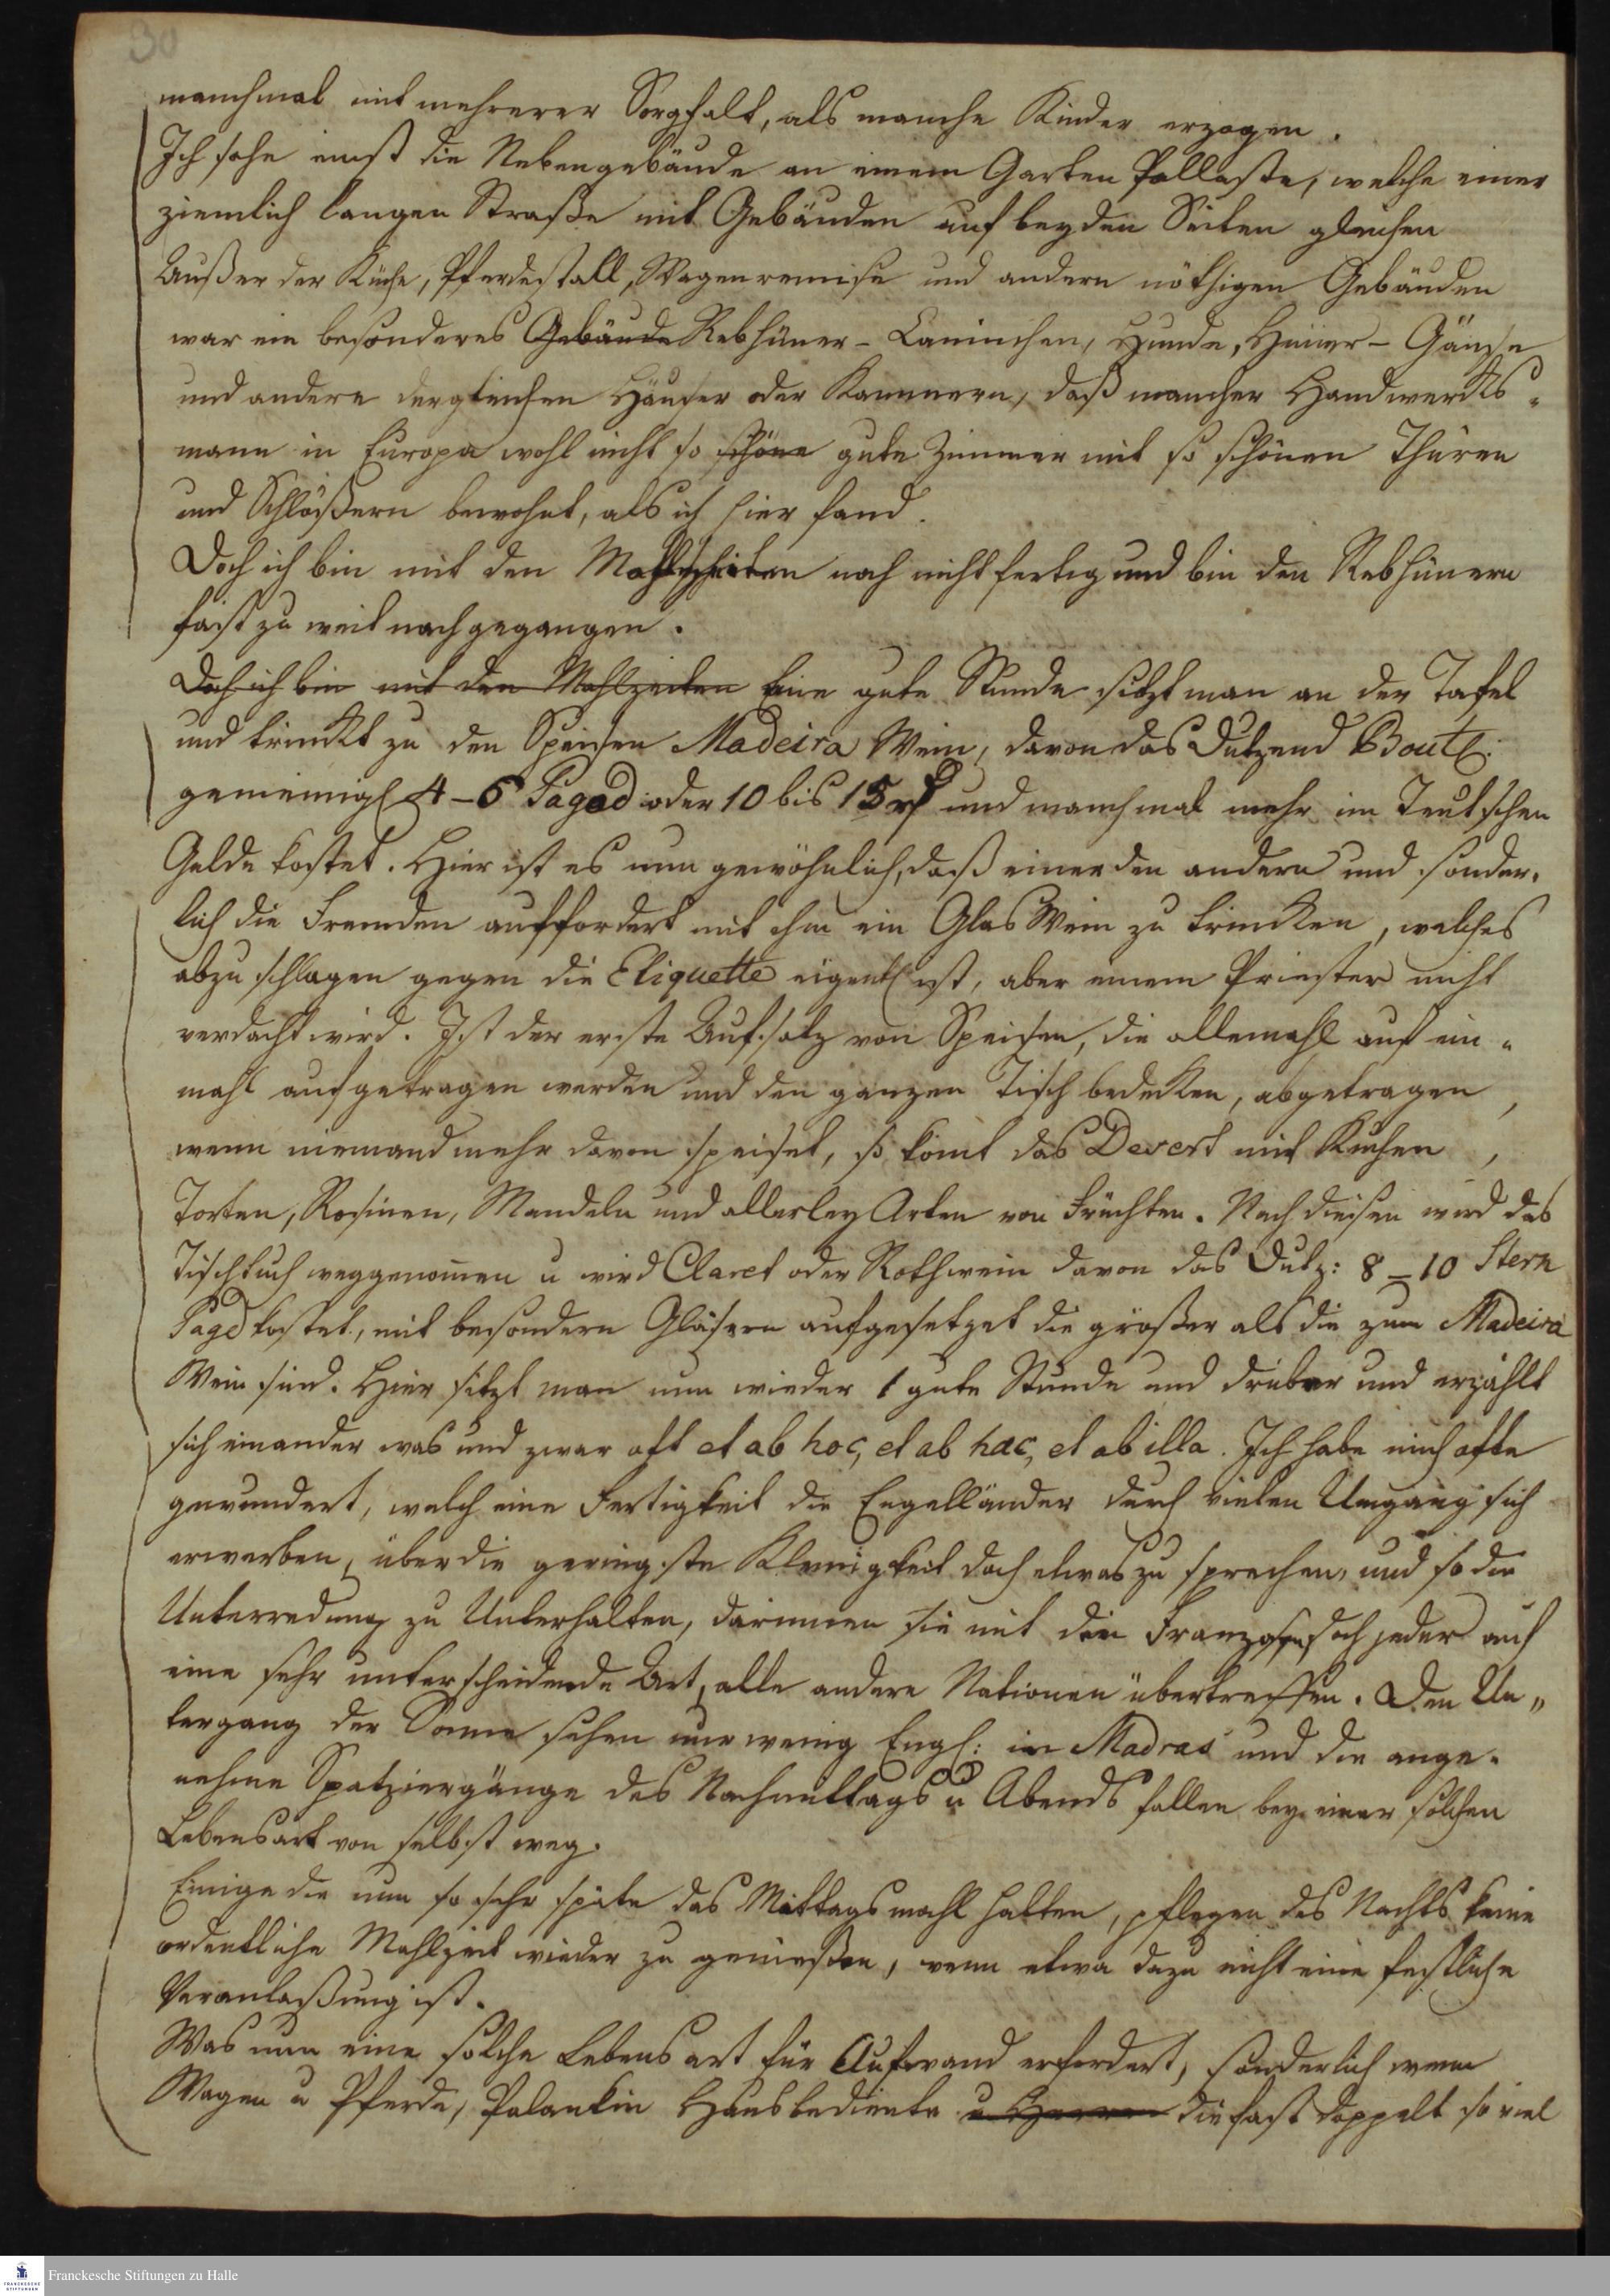 30
manchmal mit mehrerer Sorgfalt, als manche Kinder erzogen.
Ich sahe einst die Nebengebäude an einem Garten Pallaste, welche einer
ziemlich langen Straße mit Gebäuden auf beyden Seiten gleichen
Außer der Küche, Pferdestall, Wagenremise und andern nöthigen Gebäuden
war ein besonderes Gebäude Rebhüner- Caninchen, Hunde, Hüner- Gänse
und andere dergleichen Häuser oder Kammern, daß mancher Handwerks-
mann in Europa wohl nicht so schöne gute Zimmer mit so schönen Thüren
und Schlößern bewohnt, als ich hier fand.
Doch ich bin mit den Mahlzeiten noch nicht fertig und bin den Rebhünern
fast zu weit nachgegangen.
Doch ich bin mit den Mahlzeiten Eine gute Stunde sitzt man an der Tafel
und trinckt zu den Speisen Madeira Wein, davon das Dutzend Boutl:
gemeinigl 4-6 Pagod oder 10 bis 15 rf und manchmal mehr im Teutschen
Gelde kostet. Hier ist es nun gewöhnlich, daß einer den andern und sonder-
lich die Fremden auffordert mit ihm ein Glas Wein zu trincken, welches
abzuschlagen gegen die Etiquette eigentl ist, aber einem Priester nicht
verdacht wird. Ist der erste Aufsatz von Speisen, die allemahl auf ein-
mahl aufgetragen werden und den ganzen Tisch bedecken, abgetragen,
wenn niemand mehr davon speiset, so komt das Desert mit Kuchen,
Torten, Rosinen, Mandeln und allerley Arten von Früchten. Nach diesen wird das
Tischtuch weggenommen u wird Claret oder Rothwein davon das Dutz: 8-10 Stern
Pagd kostet, mit besondern Gläsern aufgesetzet die größer als die zum Madeira
Wein sind. Hier sitzt man nun wieder 1 gute Stunde und drüber und erzählt
sich einander was und zwar oft et ab hoc, et ab hac, et ab illa. Ich habe mich ofte
gewundert, welch eine Fertigkeit die Engelländer durch vielen Umgang sich
erwerben, über die geringste Kleinigkeit doch etwas zu sprechen, und so die
Unterredung zu Unterhalten, darinnen sie mit den Franzosen doch jeder auf
eine sehr unterscheidende Art, alle andere Nationen übertreffen. Den Un-
tergang der Sonne sehen nur wenig Engl: in Madras und die ange-
nehme Spatziergänge des Nachmittags u Abends fallen bey einer solchen
Lebensart von selbst weg.
Einige die nun so sehr späte das Mittagsmahl halten, pflegen des Nachts keine
ordentliche Mahlzeit wieder zu genießen, wenn etwa dazu nicht eine festliche
Veranlaßung ist.
Was nun eine solche Lebensart für Aufwand erfordert, sonderlich wenn
Wagen u Pferde, Palankin Hausbediente u Herren die fast doppelt so viel
Franckesche Stiftungen zu Halle